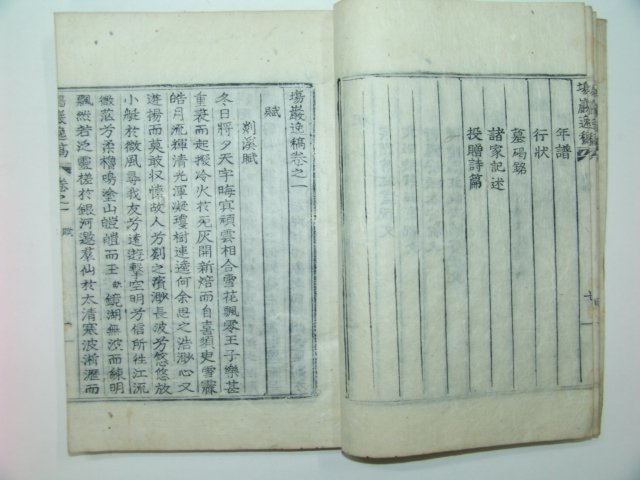 塲巖逸稿
年譜
行狀
墓碣銘
諸家記述
投贈詩篇
塲巖逸稿卷之一
賦
剡溪賦
冬日將夕天宇晦冥頑雲相合雪花飄零王子樂甚
重裘而起撥冷火於死灰開新焙而自喜須臾雪霽
皓月流輝清光渾凝瓊樹連逵何余思之浩渺心又
遊揚而莫敢収懷故人兮剡之濱渺長波兮悠悠放
小艇於微風尋我友兮遠遊擊空明兮信所徃江流
微茫兮柔櫓鳴塗山皚皚而玉 鏡湖無波而練明
飄然若泛雲槎於銀河邀羣仙於太清寒波淅瀝而
塲巖逸稿 卷之一 賦